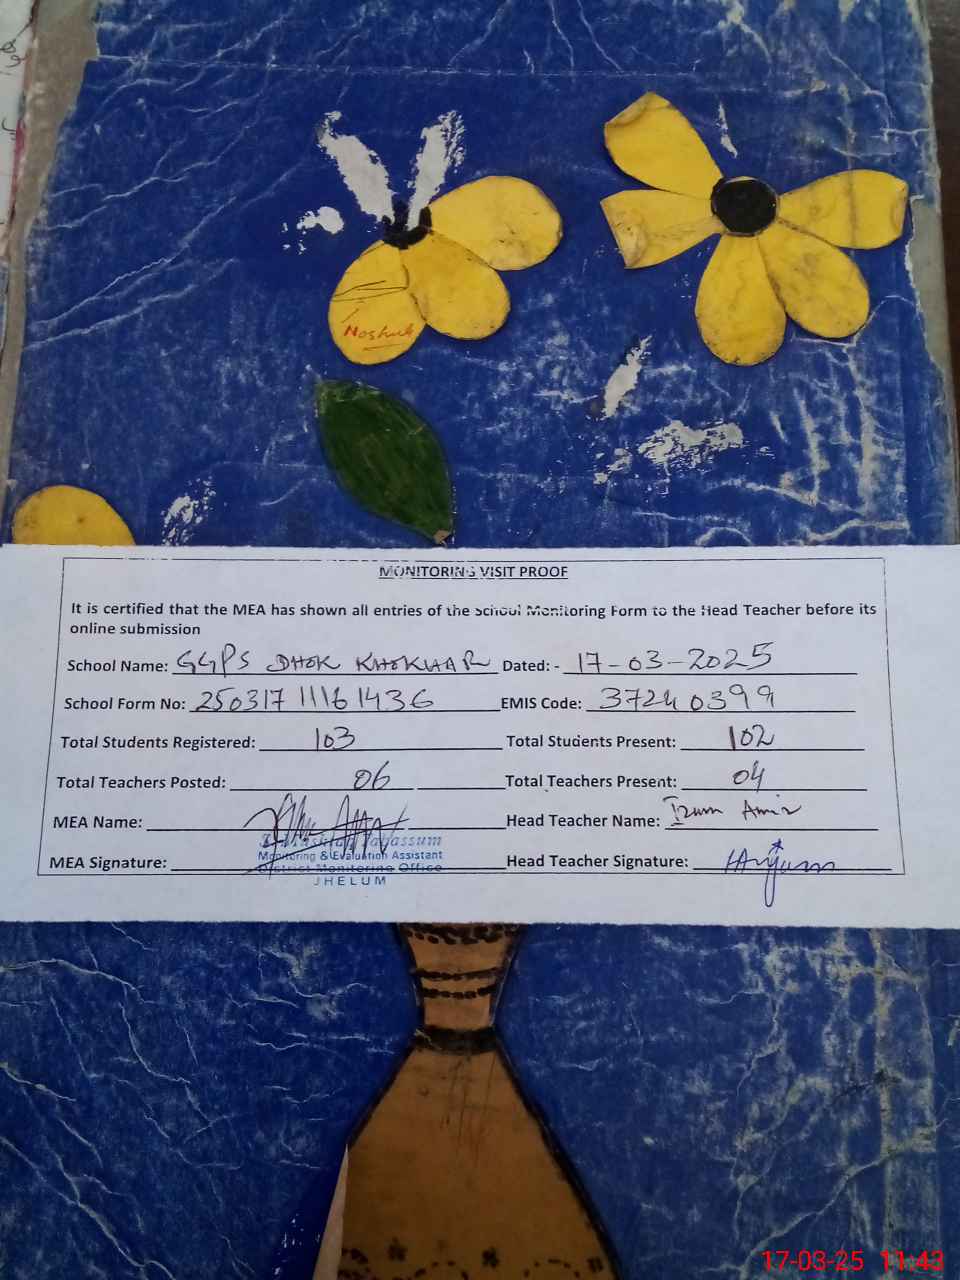 Noshub
MONITORING VISIT PROOF
It is certified that the MEA has shown all entries of the School Monitoring Form to the Head Teacher before its
online submission
School Name: GGPS DHOK KHOKHAR Dated: - 17-03-2025
School Form No: 250317 1116 1436 EMIS Code: 37240399
Total Students Registered: 103 Total Students Present: 102
Total Teachers Posted: 06 Total Teachers Present: 04
MEA Name: Head Teacher Name: Irum Amir
Tabassum
Monitoring & Evaluation Assistant
MEA Signature: Head Teacher Signature: IAnjum
District Monitoring Office
JHELUM
17-03-25 11:43